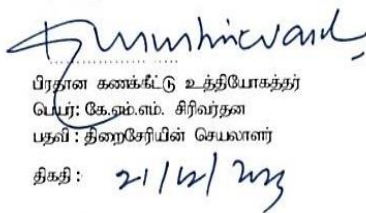 பிரதான கணக்கீட்டு உத்தியோகத்தர்
பெயர்: கே.எம்.எம். சிரிவர்தன
பதவி : திறைசேரியின் செயலாளர்
திகதி : 21/12/2023